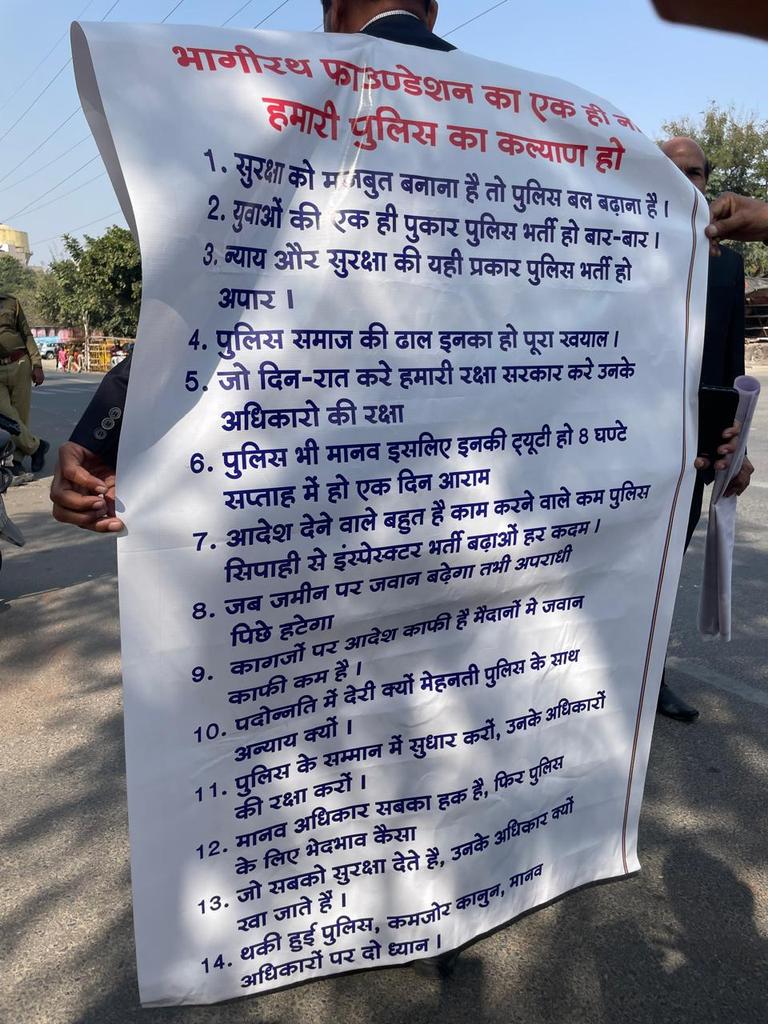 भागीरथ फाउण्डेशन का एक ही
हमारी पुलिस का कल्याण हो
1. सुरक्षा को मजबुत बनाना है तो पुलिस बल बढ़ाना है।
2. युवाओं की एक ही पुकार पुलिस भर्ती हो बार-बार।
3. न्याय और सुरक्षा की यही प्रकार पुलिस भर्ती हो
अपार ।
4. पुलिस समाज की ढाल इनका हो पूरा खयाल।
5. जो दिन-रात करे हमारी रक्षा सरकार करे उनके
अधिकारो की रक्षा
6. पुलिस भी मानव इसलिए इनकी ट्यूटी हो 8 घण्टे
सप्ताह में हो एक दिन आराम
7. आदेश देने वाले बहुत है काम करने वाले कम पुलिस
सिपाही से इंस्पेक्टर भर्ती बढ़ाओं हर कदम।
8. जब जमीन पर जवान बढ़ेगा तभी अपराधी
पिछे हटेगा
9. कागजों पर आदेश काफी है मैदानों मे जवान
काफी कम है।
10. पदोन्नति में देरी क्यों मेहनती पुलिस के साथ
अन्याय क्यों ।
11. पुलिस के सम्मान में सुधार करों, उनके अधिकारों
की रक्षा करों ।
12. मानव अधिकार सबका हक है, फिर पुलिस
के लिए भेदभाव कैसा
13. जो सबको सुरक्षा देते है, उनके अधिकार क्यों
खा जाते हैं ।
14. थकी हुई पुलिस, कमजोर कानुन, मानव
अधिकारों पर दो ध्यान ।